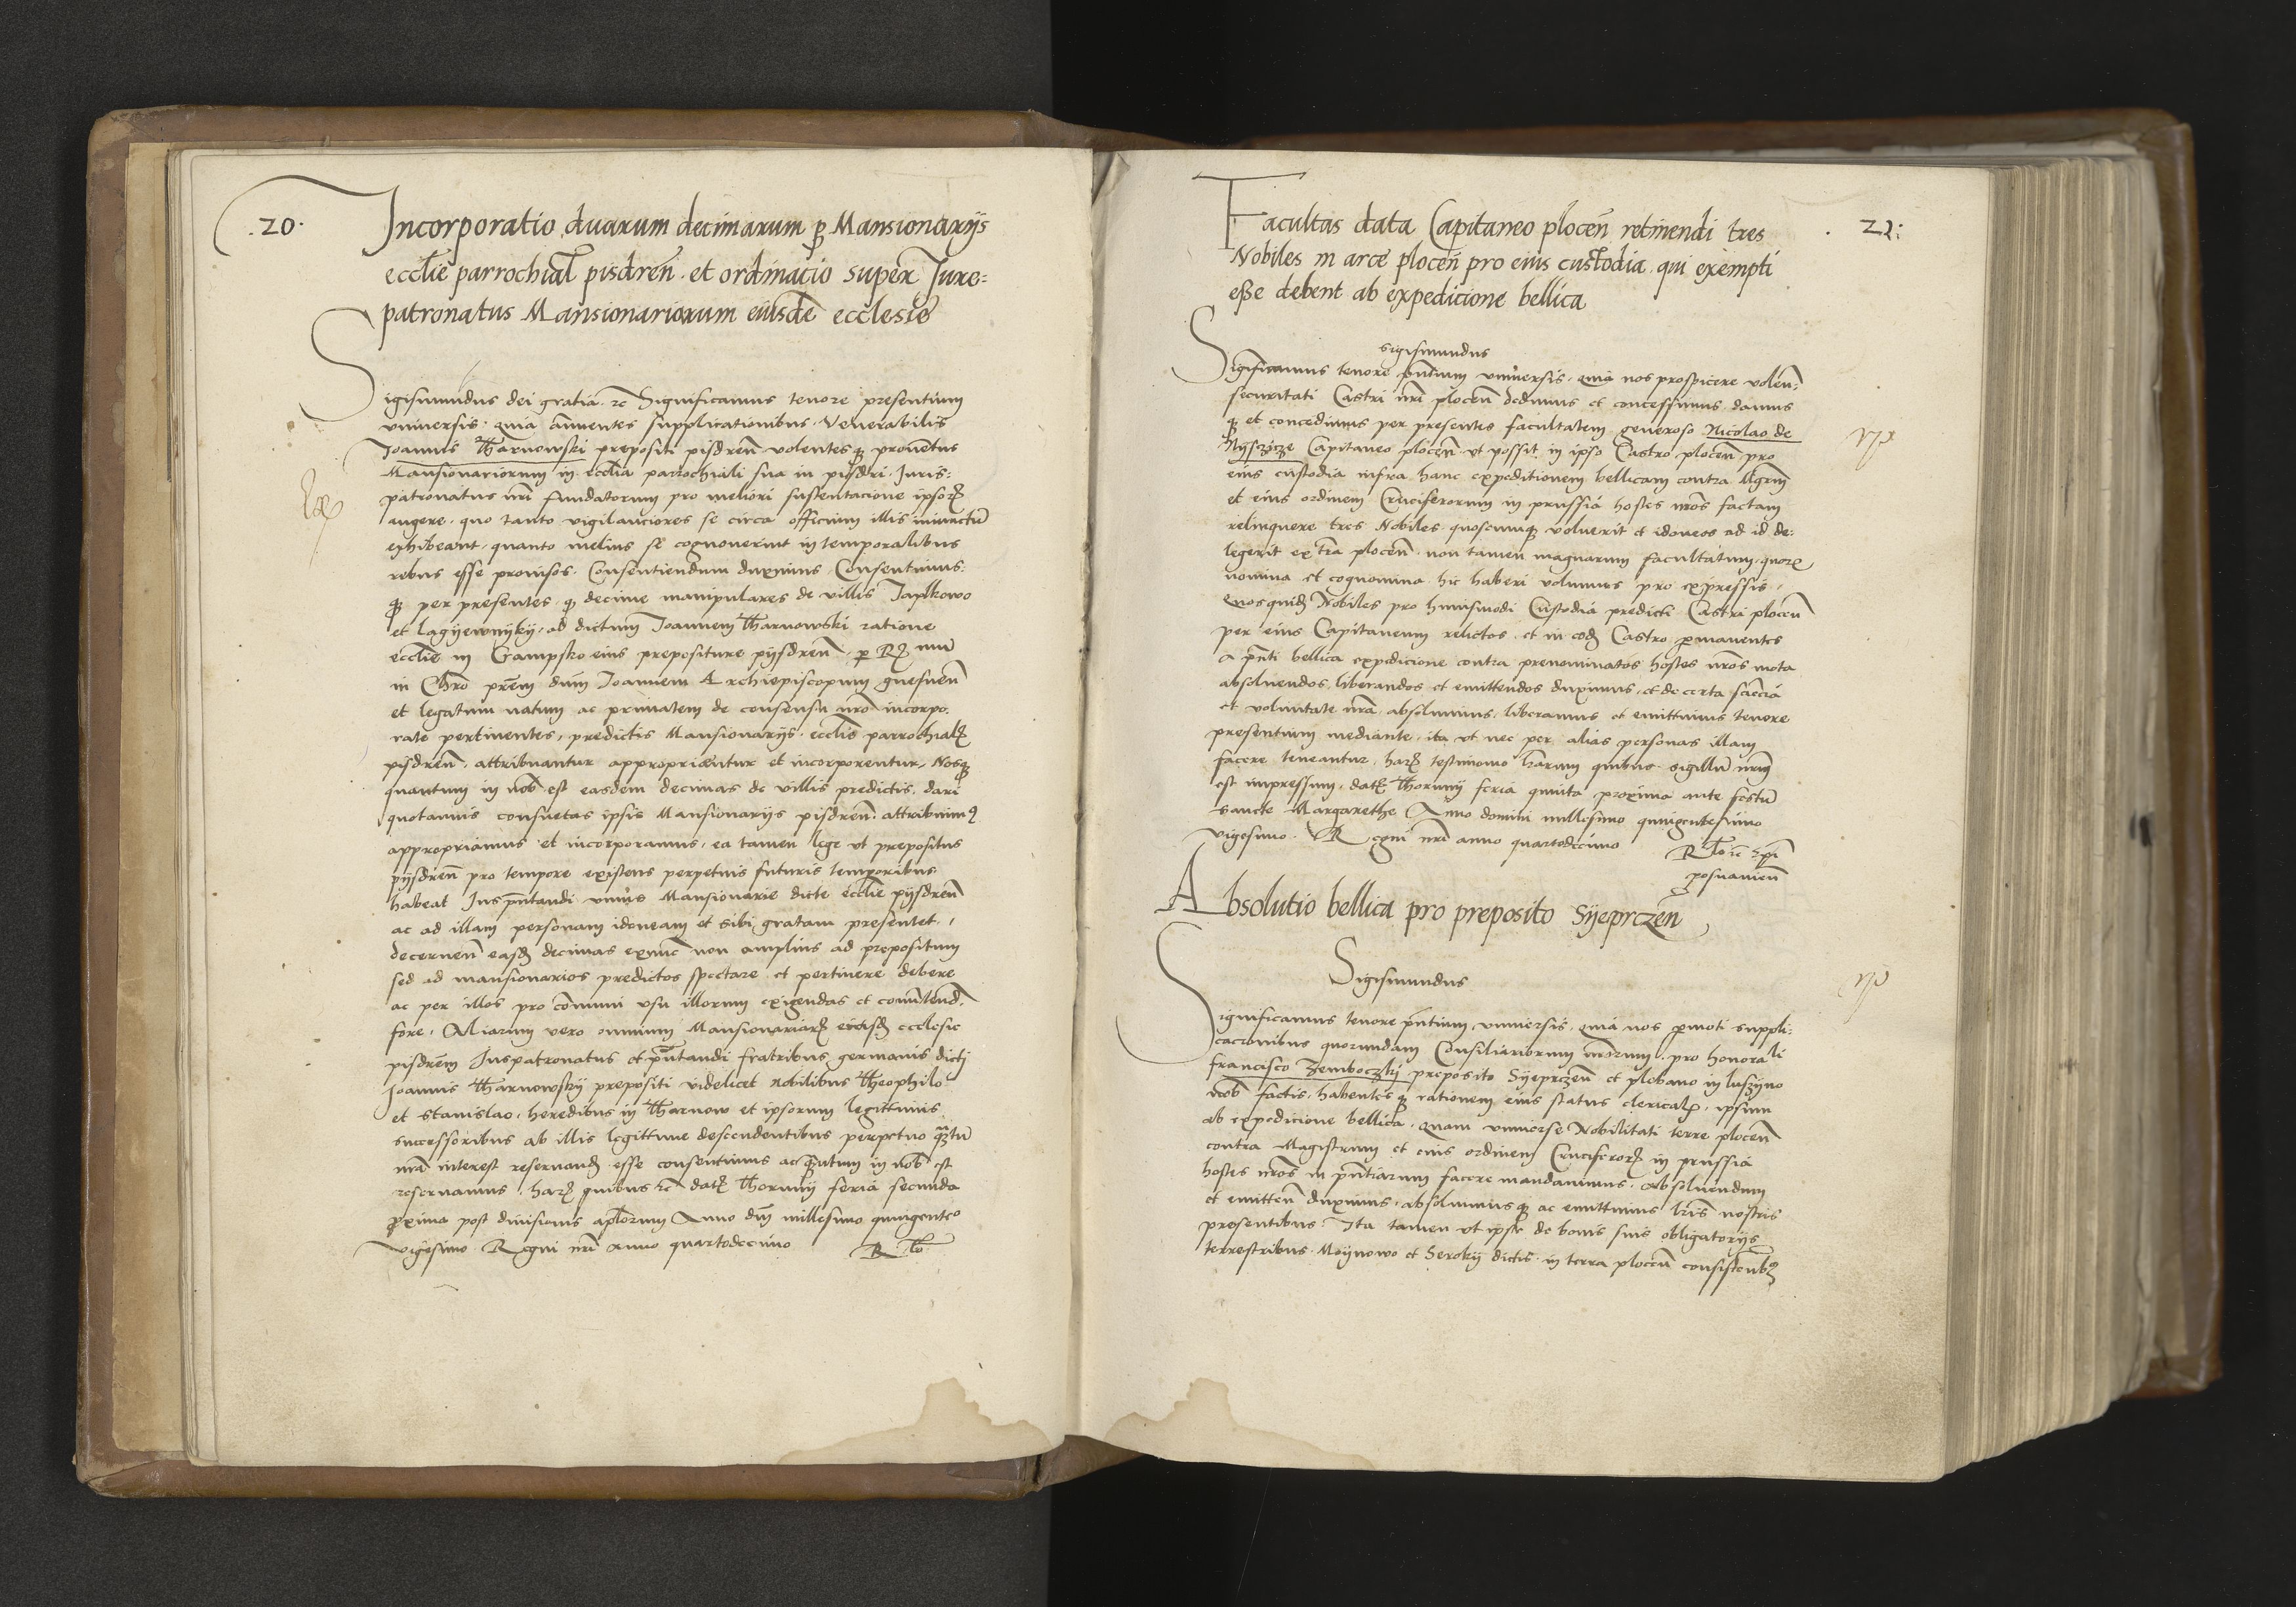 20.
Incorporatio duarum decimarum p Mansionarijs
ecclie parrochial pisdren. et ordinacio super Jure=
patronatus Mansionariorum eiusde ecclesie
Sigismundus dei gratia. rc Significamus tenore presentium
universis. quia annuentes supplicationibus. Venerabilis
Joannis Tharnowski prepositi pisdren volentesq proventus
Mansionariorum in ecclia parrochiali sua in pisdri. Juris:
patronatus nri fundatorum pro meliori sustentacione ipsorz
augere. quo tanto vigilanciores se circa officium illis iniunctu
exhibeant. quanto melius se cognoverint in temporalibus
rebus esse provisos. Consentiendum duximus. Consentimus:
q per presentes. q decime manipulares de villis Japlkowo
et Lagyewnyky. ad dictum Joannem Tharnowski ratione
ecclie in Grampsko eius prepositure pysdren. p Rz mu
in Chro prem dum Joannem Archiepiscopum gnesnen
et legatum natum ac primatem de consensu nro incorpo.
rate pertinentes, predictis Mansionarijs. ecclie parrochialz
pisdren. attribuantur approprientur et incorporentur. Nosq
quantum in nob est easdem decimas de villis predictis. dari
quotannis consuetas ipsis Mansionarijs pisdren. attribuim9
appropriamus et incorporamus, ea tamen lege ut prepositus
pysdren pro tempore existens perpetuis futuris temporibus
habeat Jus pntandi unius Mansionarie dicte ecclie pysdren
ac ad illam personam idoneam et sibi gratam presentet.,
decernen easd decimas exnuc non amplius ad prepositum
sed ad mansionarios predictos spectare et pertinere debere
ac per illos pro comuni usu illorum exigendas et convertend.
fore. Aliarum vero omnium Mansionariarz eiusd ecclesie
pisdrem Juspatronatus et pntandi fratribus germanis dicti
Joannis Tharnowsky prepositi videlicet Nobilibus Theophilo
et Stanislao. heredibus in Tharnow et ipsorum legittimis
successoribus ab illis legittime descendentibus perpetuo qztu
nra interest reservand esse consentimus ac qztum in nob est
reservamus. harz quibus rc datz Thorunij feria secunda
proxima post divisionis aplorum Anno dni millesimo quingento
vigesimo Regni nri anno quartodecimo R to
21:
Facultas data Capitaneo plocen retinendi tres
Nobiles in arce plocen pro eius custodia. qui exempti
esse debent ab expedicione bellica
Sigismundus
Significamus tenore pntium universis. quia nos prospicere volen:
securitati Castri nri plocen dedimus et concessimus. damus
q et concedimus per presentes facultatem generoso Nicolao de
Nysczicze Capitaneo plocen ut possit in ipso Castro plocen pro
eius custodia infra hanc expeditionem bellicam contra Mgrm
et eius ordinem Cruciferorum in prussia hostes nros factam
relinquere tres Nobiles. quoscumq voluerit et idoneos ad id de:
legerit ex tra plocen. non tamen magnarum facultatum. quorz
nomina et cognomina hic haberi volumus pro expressis.
Quosquid Nobiles pro huiusmodi Custodia predicti Castri plocen
per eius Capitaneum relictos. et in eod Castro pmanentes
a pnti bellica expedicione contra prenominatos hostes nros mota
absolvendos. liberandos et emittendos duximus. et de certa sciecia
et voluntate nra. absolvimus. liberamus et emittimus tenore
presentium mediante. ita ut nec per alias personas illam
facere teneantur. harz testimonio lrarum quibus sigillu nrm
est impressum. datz Thorunij feria quinta proxima ante festu
sancte Margarethe Anno domini millesimo quingentesimo
vigesimo. Regni nri anno quartodecimo
posnanien
Absolutio bellica pro preposito Syeprczen
Sigismundus
Significamus tenore pntium, universis. quia nos pmoti suppli:
cacionibus quorundam Consiliariorum nrorum. pro honorali
francisco Zemboczky preposito Syeprczen et plebano in luszyno
nob factis. habentesq rationem eius status clericalz. ipsum
ab expedicione bellica. quam universe Nobilitati terre plocen
contra Magistrum et eius ordinem Cruciferorz in prussia
hostes nros in pntiarum facere mandavimus. absolvendum
et emitten duximus. absolvimusq ac emittimus lris nostris
presentibus. Ita tamen ut ipse de bonis suis obligatorijs
terrestribus. Moynowo et Seroky dictis. in terra plocen consistentibz